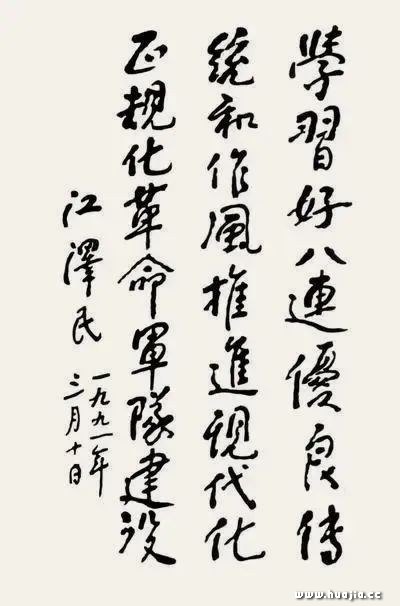 學習好八連優良傳
統和作風推進現代化
正規化革命軍隊建設
江澤民
一九九一年
三月十日
www.huajia.cc